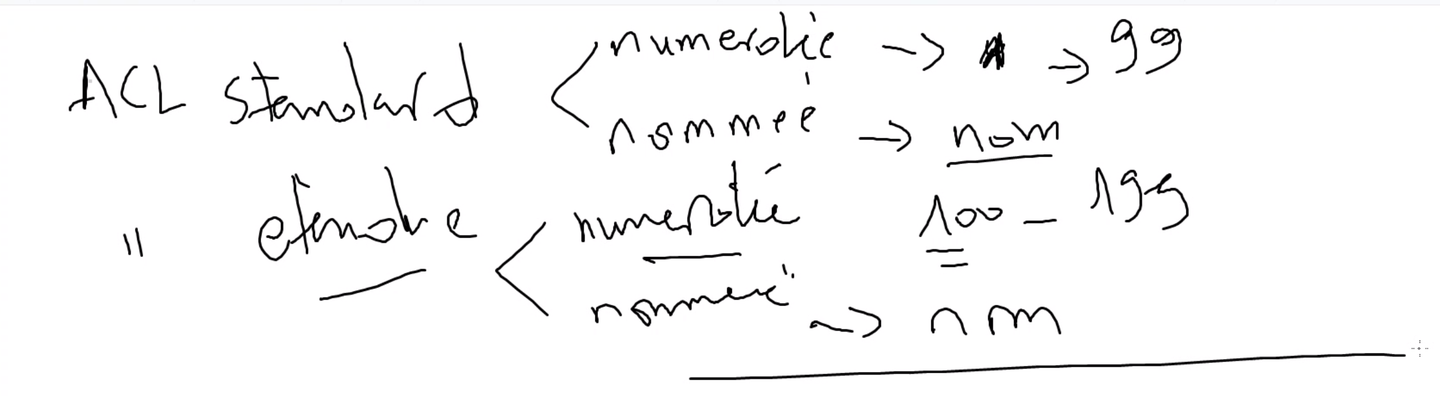 ACL standard < numeroti̇é -> 1 -> 99
nommée -> nom
" etendue < numerotié 100 - 199
nommeé -> nom